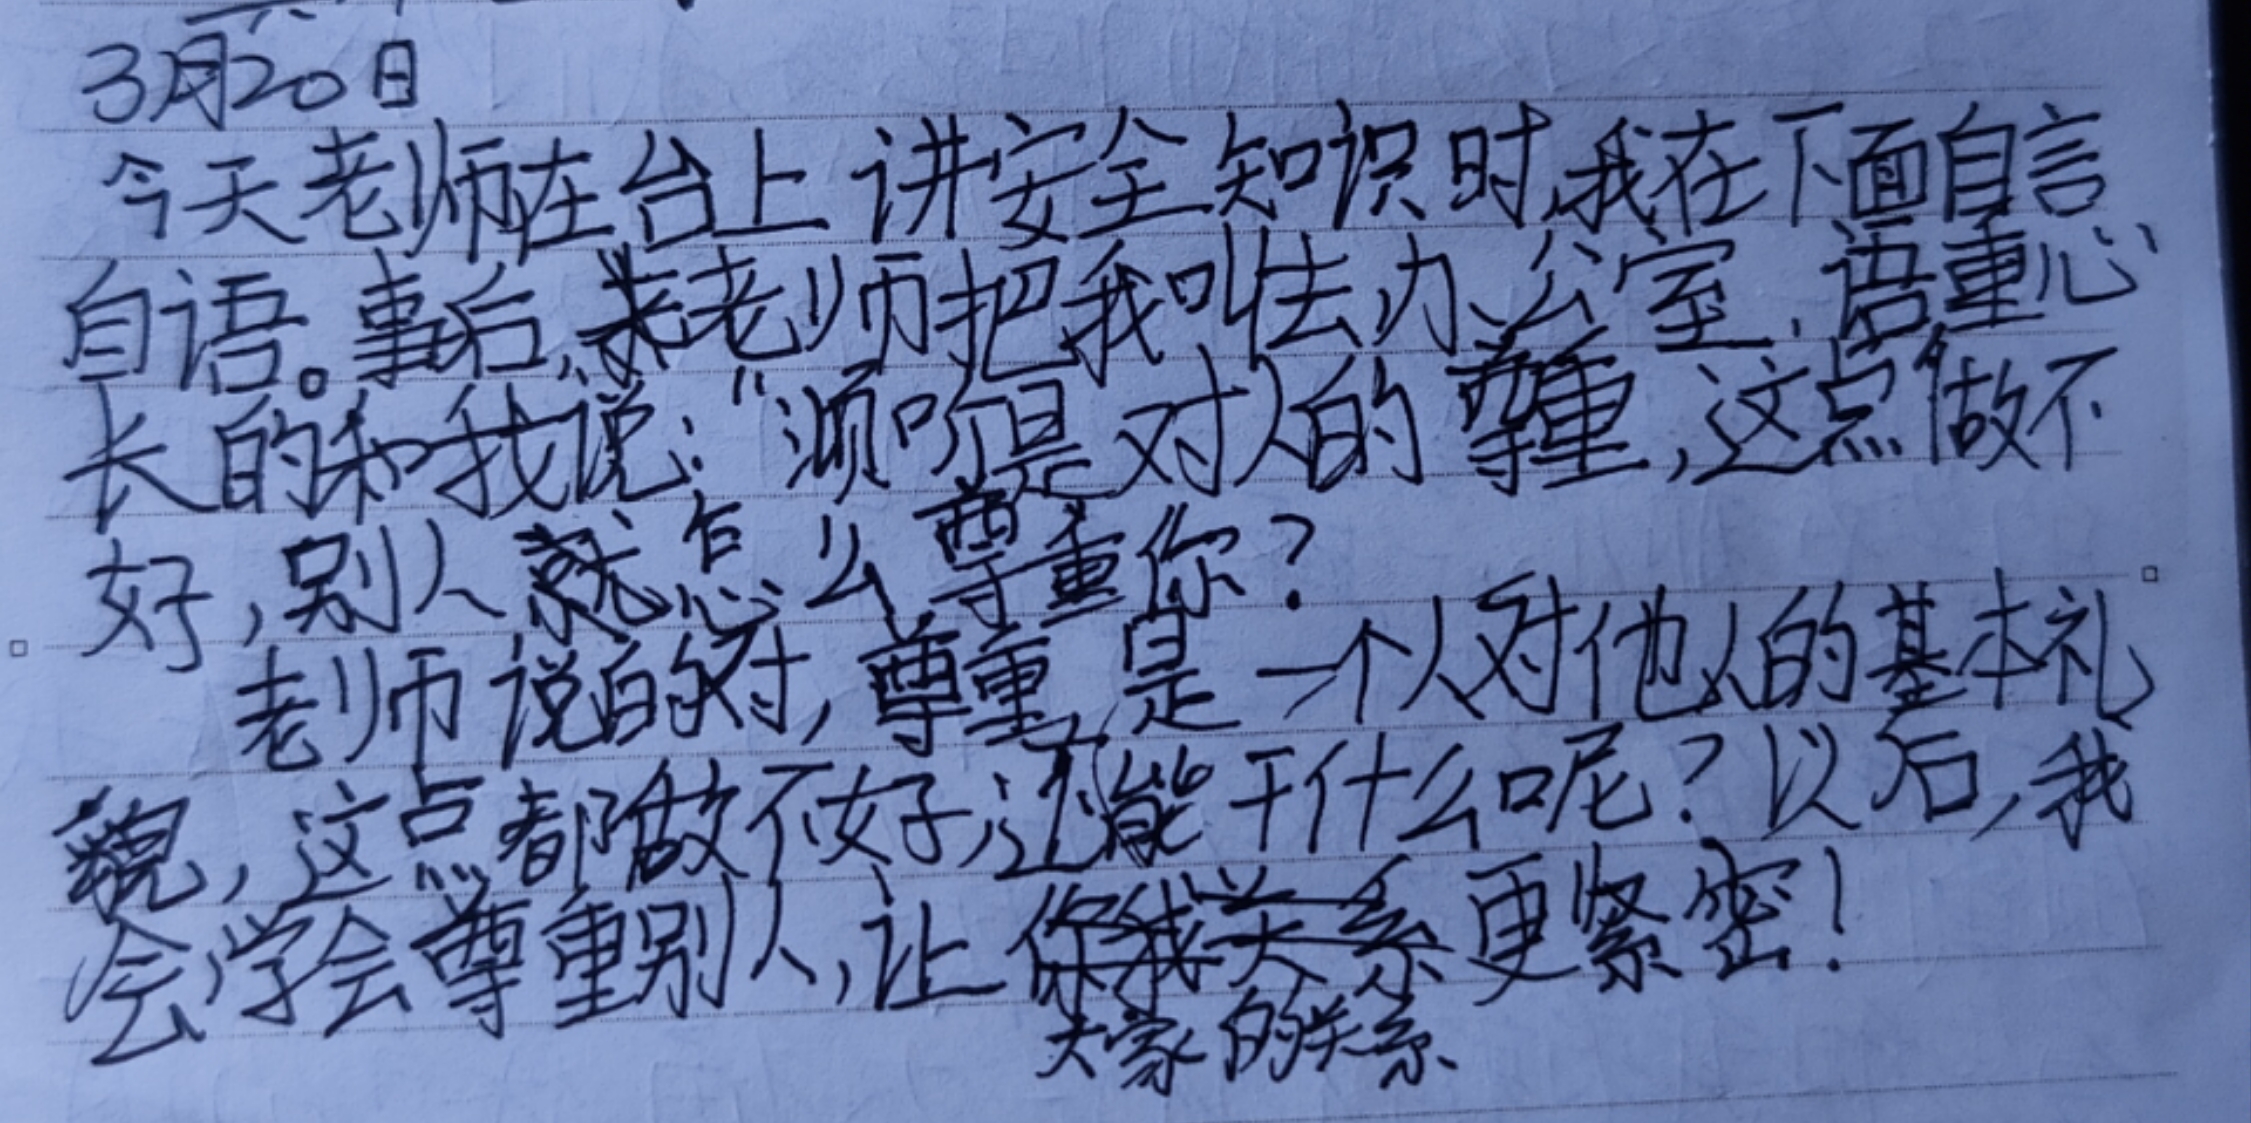 3月20日
今天老师在台上讲安全知识时,我在下面自言
自语。事后,老师把我叫去办公室,语重心
长的和我说:“倾听是对人的尊重,这点做不
好,别人就怎么尊重你?
老师说的对,尊重是一个人对他人的基本礼
貌,这点都做不好,还能干什么呢?以后,我
会学会尊重别人,让你我关系更紧密!
大家的关系